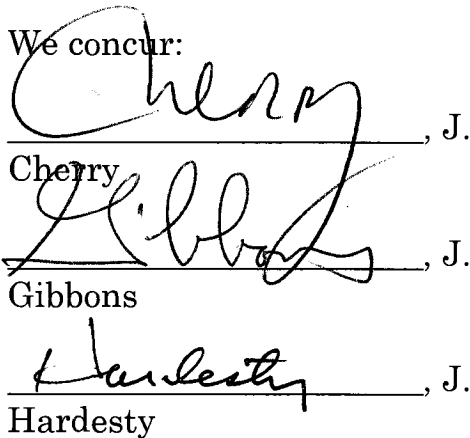 We concur:
Cherry, J.
Cherry
Gibbons, J.
Gibbons
Hardesty, J.
Hardesty